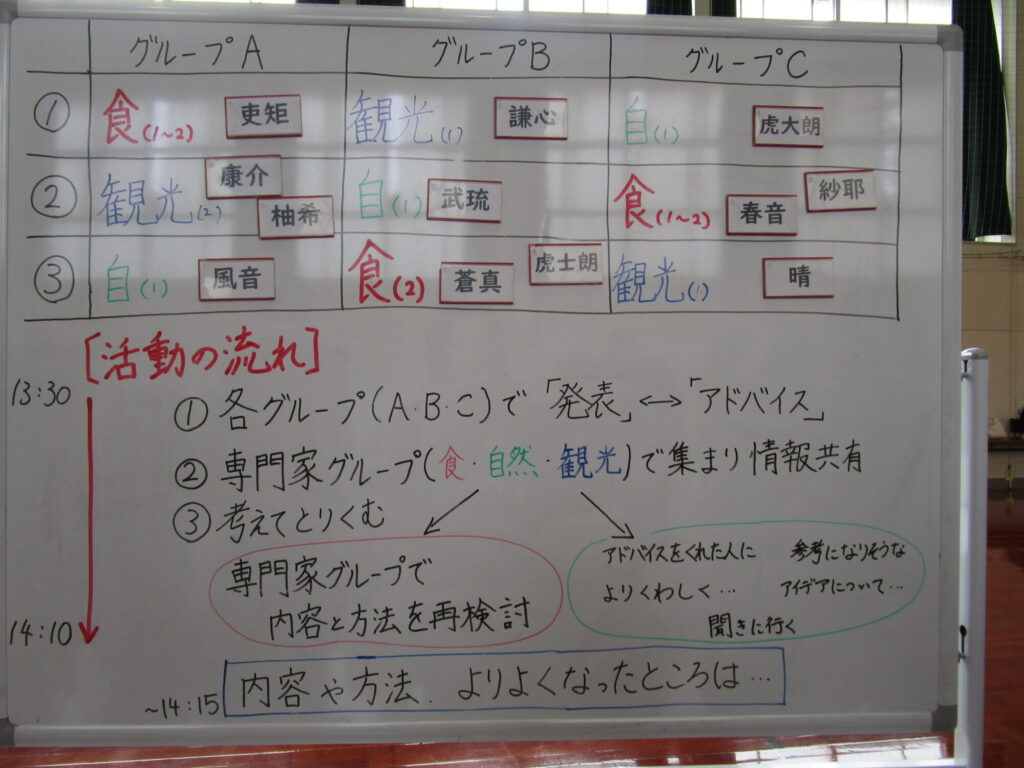 グループA グループB グループC
① 食(1~2) 吏矩 観光(1) 謙心 自(1) 虎大朗
② 観光(2) 康介 柚希 自(1) 武琉 食(1~2) 春音 紗耶
③ 自(1) 風音 食(2) 蒼真 虎士朗 観光(1) 晴
[活動の流れ]
13:30
① 各グループ(A・B・C)で「発表」↔「アドバイス」
② 専門家グループ(食・自然・観光)で集まり情報共有
③ 考えてとりくむ
専門家グループで
内容と方法を再検討
アドバイスをくれた人に
よりくわしく…
参考になりそうな
アイデアについて…
聞きに行く
14:10
~14:15 内容や方法.よりよくなったところは…